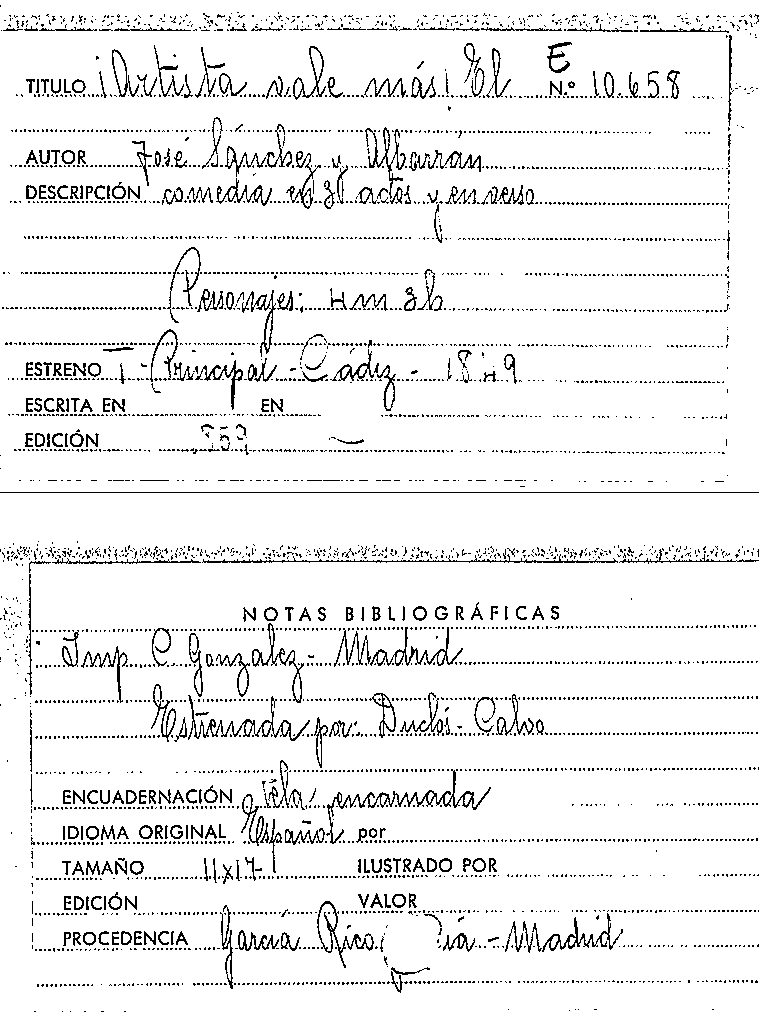 E
TITULO ¡Artista vale más! El N.º 10.658
AUTOR José Sánchez y Albarrán
DESCRIPCIÓN comedia en 3 actos y en verso
Personajes: 4m 3h
ESTRENO T-Principal-Cádiz- 1849
ESCRITA EN EN
EDICIÓN
NOTAS BIBLIOGRÁFICAS
Imp C Gonzalez- Madrid
Estrenada por: Duclós-Calvo
ENCUADERNACIÓN tela encarnada
IDIOMA ORIGINAL Español por
TAMAÑO 11x17 ILUSTRADO POR
EDICIÓN VALOR
PROCEDENCIA García Rico - Madrid